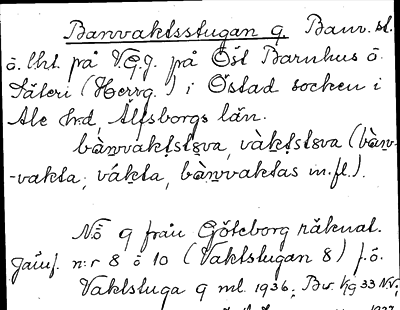 Banvaktsstugan 9. Banv. st.
ö. lht. på V.G.J. på Östl Barnhus ö.
Säteri (Herrg.) i Östad socken i
Ale hrd, Älfsborgs län.
bànvaktstɐva, vàktstɐva (bàn-
-vakta, vákta, bànvaktas m.fl.).
No 9 från Göteborg räknat.
Jämf. n:r 8 o 10 (Vaktstugan 8) f.ö.
Vaktstuga 9 ml. 1936;